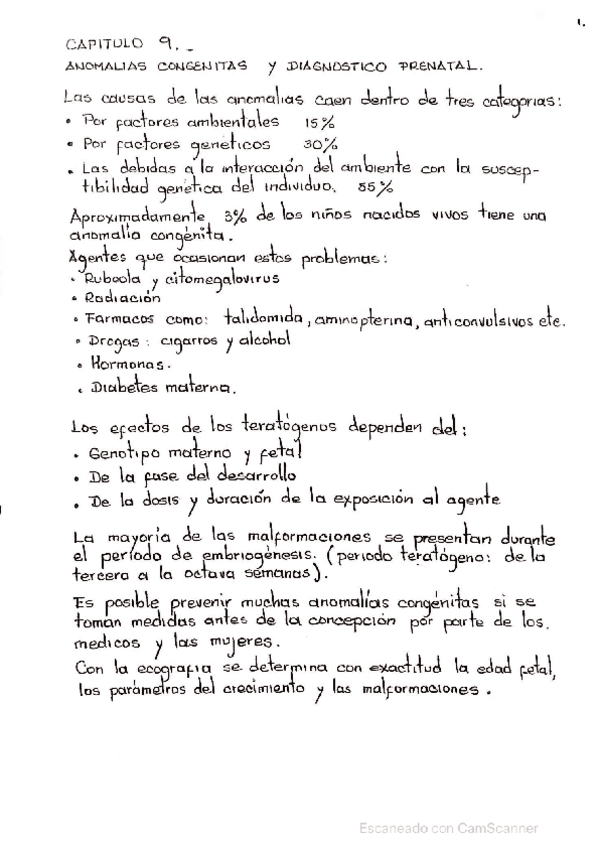 1.
CAPITULO 9._
ANOMALIAS CONGENITAS Y DIAGNOSTICO PRENATAL.
Las causas de las anomalias caen dentro de tres categorias:
• Por factores ambientales 15%
• Por factores geneticos 30%
• Las debidas a la interacción del ambiente con la suscep-
tibilidad genética del individuo. 55%
Aproximadamente 3% de los niños nacidos vivos tiene una
anomalía congénita.
Agentes que ocasionan estos problemas:
• Rubeola y citomegalovirus
• Radiación
• Farmacos como: talidomida, aminopterina, anticonvulsivos etc.
• Drogas: cigarros y alcohol
• Hormonas.
• Diabetes materna.
Los efectos de los teratógenos dependen del:
• Genotipo materno y fetal
• De la fase del desarrollo
• De la dosis y duración de la exposición al agente
La mayoría de las malformaciones se presentan durante
el período de embriogénesis. (periodo teratógeno: de la
tercera a la octava semanas).
Es posible prevenir muchas anomalías congénitas si se
toman medidas antes de la concepción por parte de los.
medicos y las mujeres.
Con la ecografia se determina con exactitud la edad fetal,
los parámetros del crecimiento y las malformaciones.
Escaneado con CamScanner